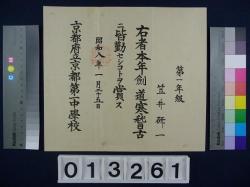 第一年級
笠井研一
右者本年劍道寒稽古
ニ皆勤セシコトヲ賞ス
昭和八年一月二十五日
京都府立京都第一中學校
013261